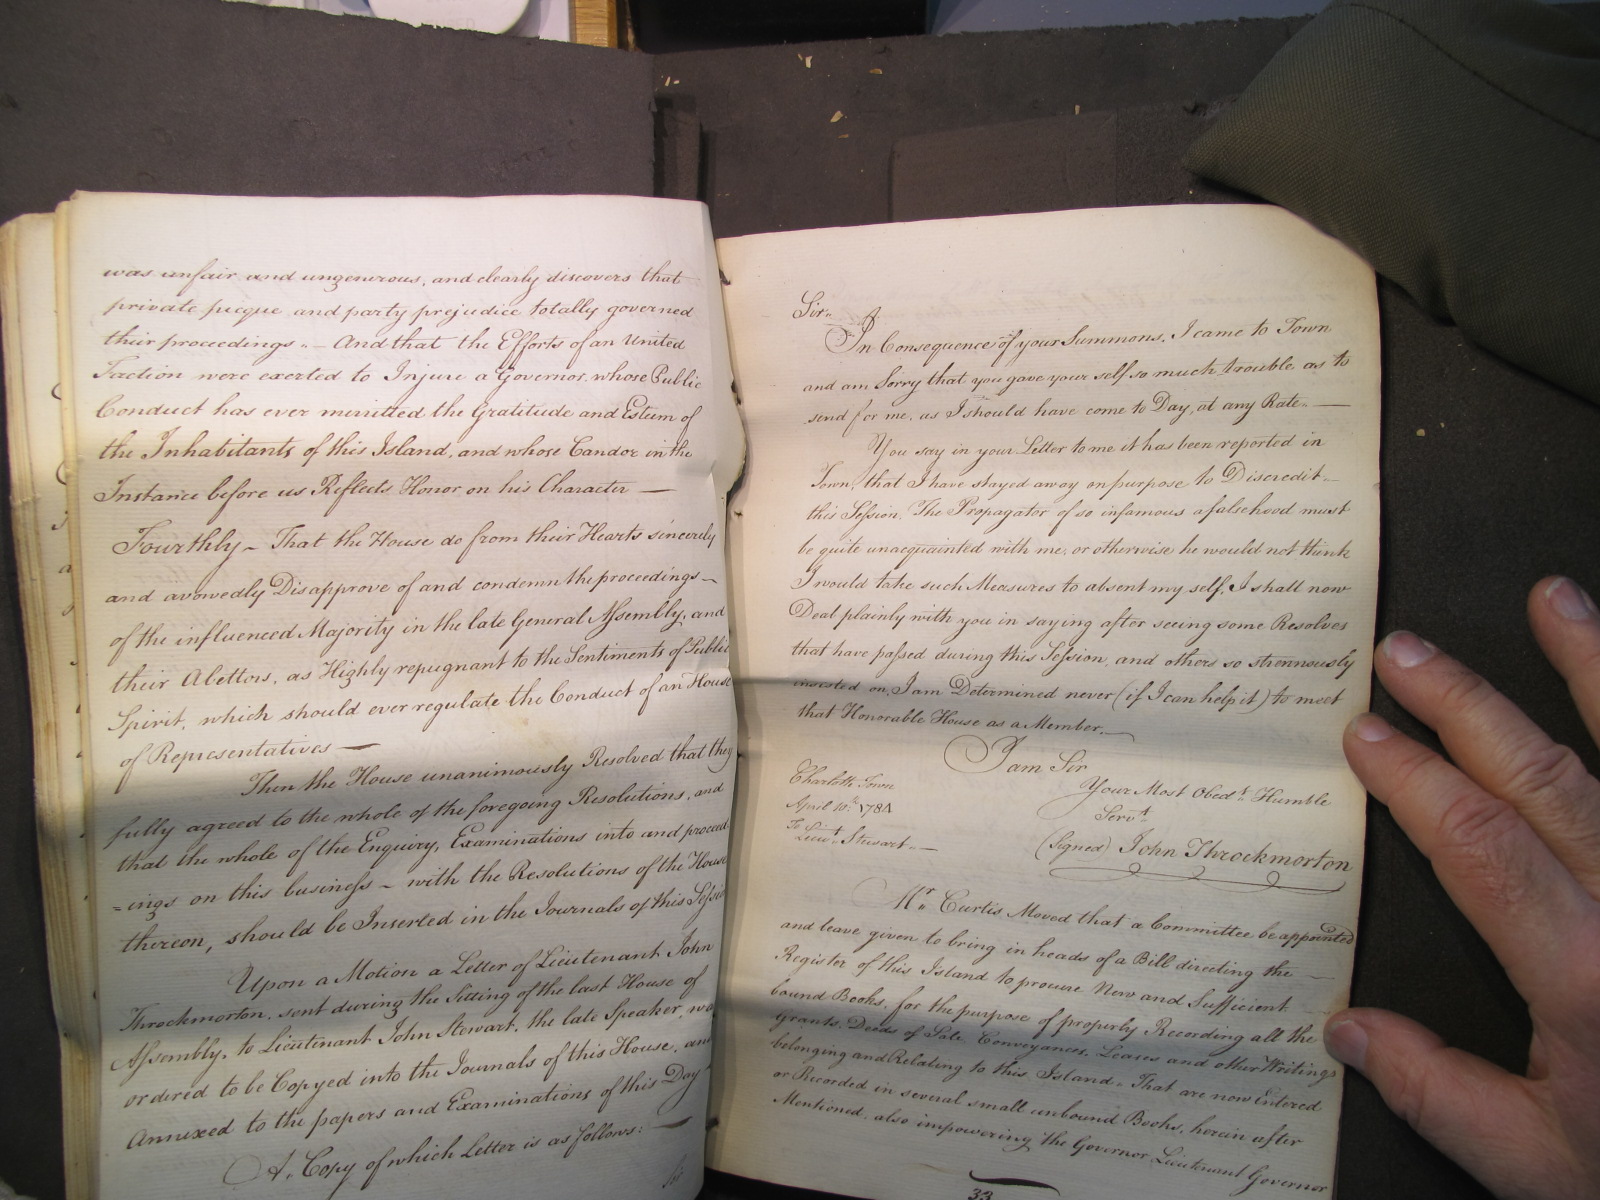 was unfair and ungenerous, and clearly discovers that
private picque and party prejudice totally governed
their proceedings.. — And that the Efforts of an United
Faction were exerted to Injure a Governor, whose Public
Conduct has ever merritted the Gratitude and Esteem of
the Inhabitants of this Island, and whose Candor in the
Instance before us Reflects Honor on his Character —
Fourthly – That the House do from their Hearts sincerely
and avowedly Disapprove of and condemn the proceedings –
of the influenced Majority in the late General Assembly, and
their Abettors, as Highly repugnant to the Sentiments of Public
Spirit, which should ever regulate the Conduct of an House
of Representatives —
Then the House unanimously Resolved that they
fully agreed to the whole of the foregoing Resolutions, and
that the whole of the Enquiry, Examinations into and proceed
=ings on this business – with the Resolutions of the House
thereon, should be Inserted in the Journals of this Session
Upon a Motion a Letter of Lieutenant John
Throckmorton, sent during the Sitting of the last House of
Assembly, to Lieutenant John Stewart, the late Speaker, was
ordered to be Copyed into the Journals of this House, and
Annexed to the papers and Examinations of this Day
A.. Copy of which Letter is as follows: —
Sir
Sir..
In Consequence of your Summons, I came to Town
and am Sorry that you gave your self so much trouble as to
send for me, as I should have come to Day, at any Rate.. —
You say in your Letter to me it has been reported in
Town, that I have stayed away on purpose to Discredit..
this Session. The Propagator of so infamous a falsehood must
be quite unacquainted with me, or otherwise he would not think
I would take such Measures to absent my self, I shall now
Deal plainly with you in saying after seeing some Resolves
that have passed during this Session, and others so strennously
insisted on, I am Determined never (if I can help it) to meet
that Honorable House as a Member.. —
I am Sir
Your Most Obedt. Humble
Servt.
Charlotte Town
April 10th 1784
To Lieut. Stewart.. —
(Signed) John Throckmorton
Mr.. Curtis Moved that a Committee be appointed
and leave given to bring in heads of a Bill directing the —
Register of this Island to procure New and Sufficient
bound Books, for the purpose of properly Recording all the
Grants, Deeds of Sale, Conveyances, Leases and other Writings
belonging and Relating to this Island.. That are now Entered
or Recorded in several small unbound Books, herein after
Mentioned, also impowering the Governor Lieutenant Governor
33